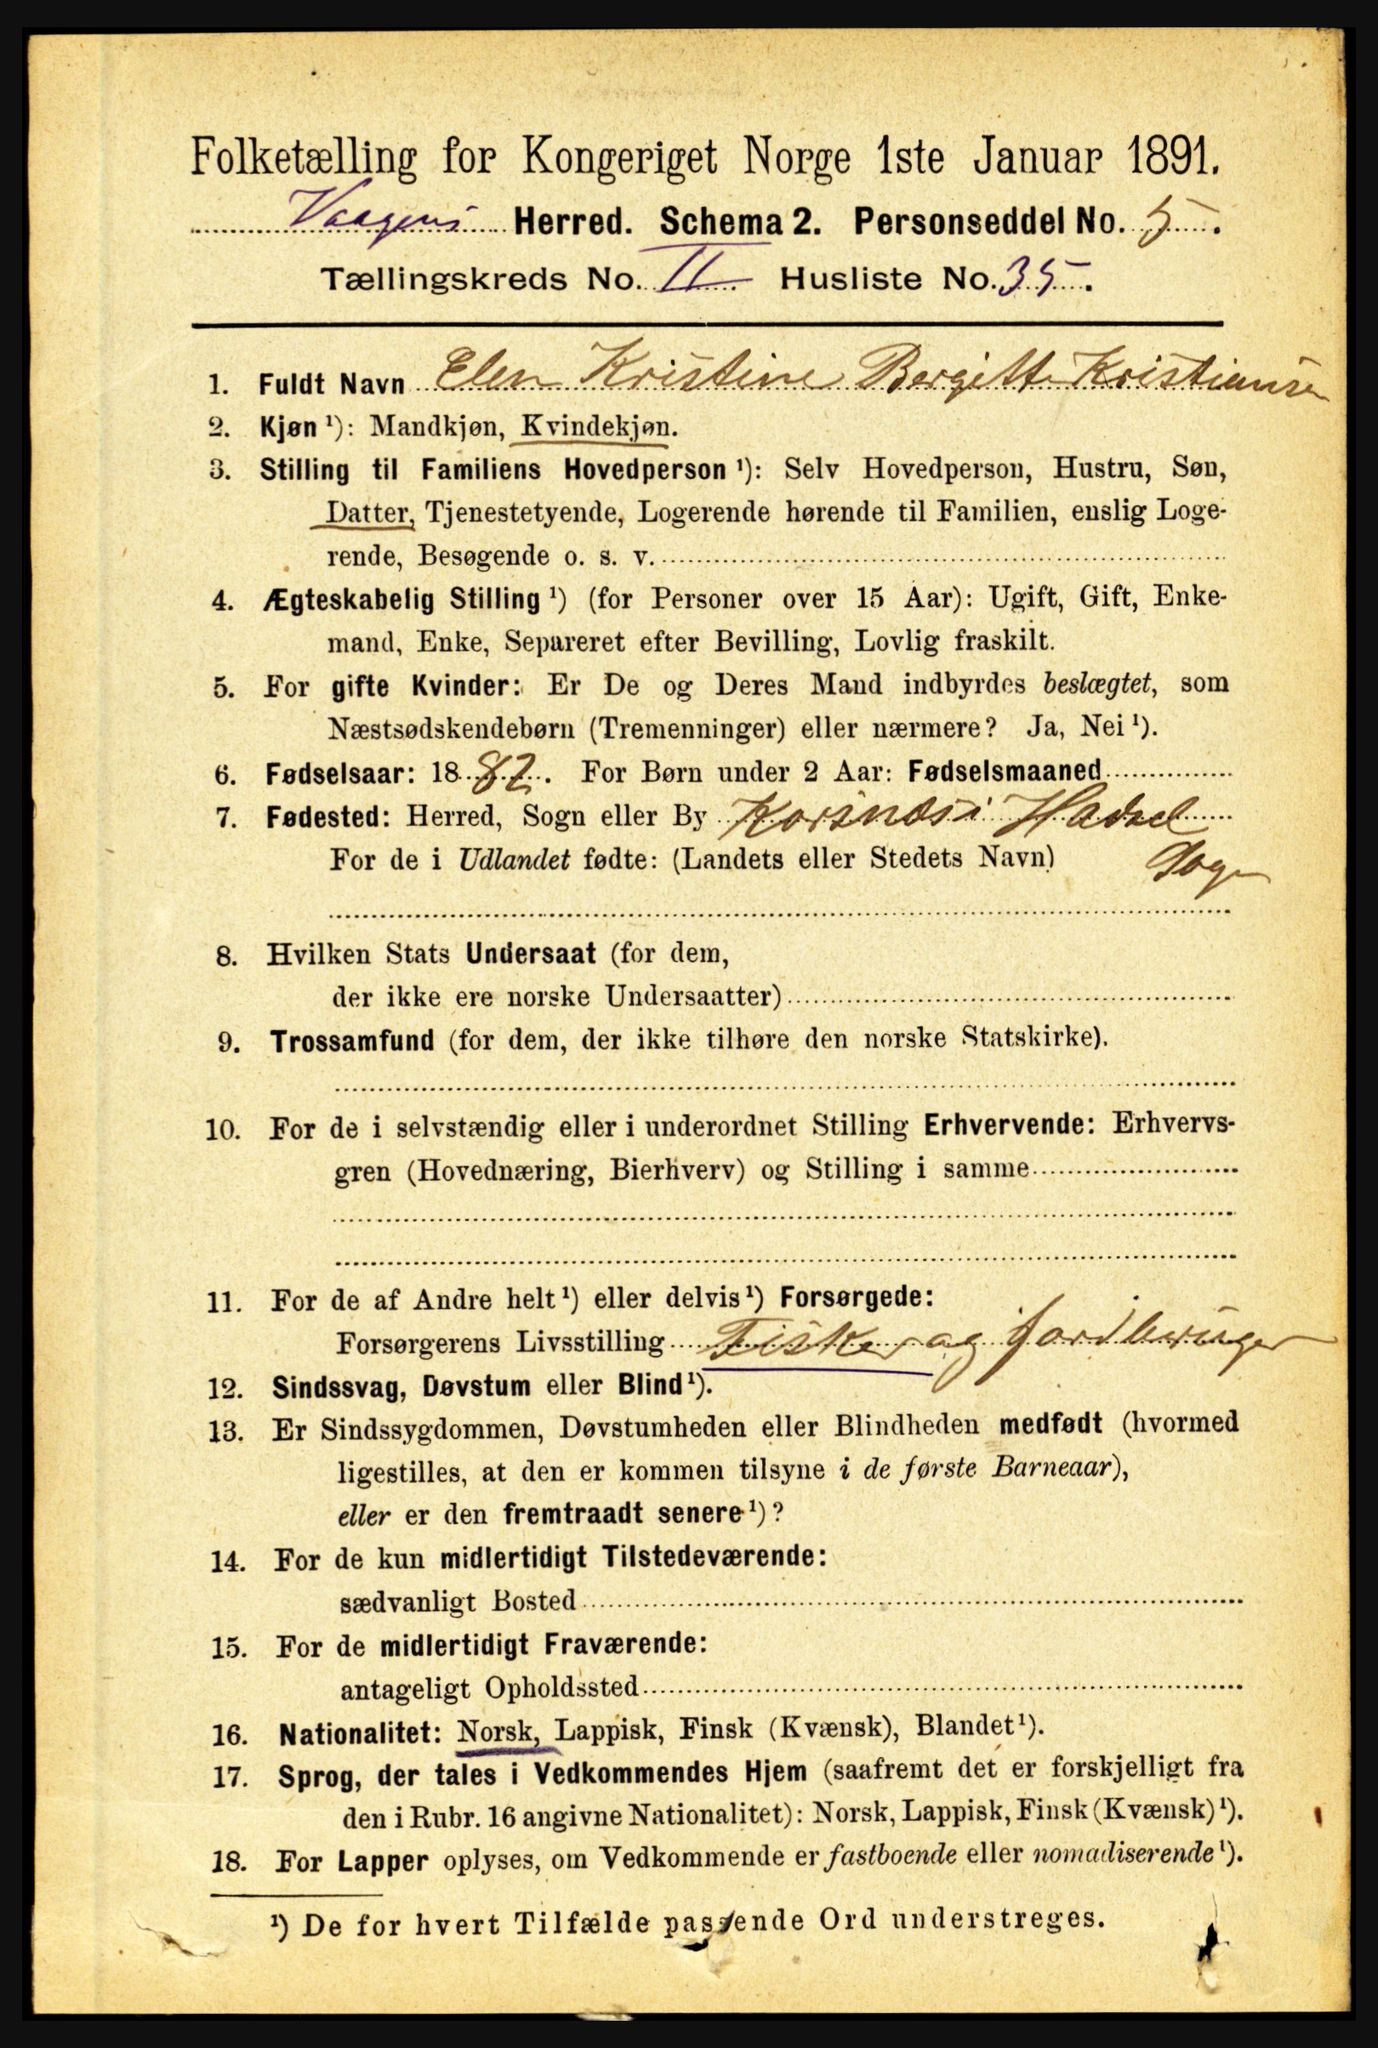 Folketælling for Kongeriget Norge 1ste Januar 1891.
Vaagens Herred. Schema 2. Personseddel No. 5.
Tællingskreds No. II Husliste No. 35.
1. Fuldt Navn Elen Kristine Bergitte Kristiansen
2. Kjøn ¹): Mandkjøn, Kvindekjøn.
3. Stilling til Familiens Hovedperson ¹): Selv Hovedperson, Hustru, Søn,
Datter, Tjenestetyende, Logerende hørende til Familien, enslig Loge-
rende, Besøgende o. s. v.
4. Ægteskabelig Stilling ¹) (for Personer over 15 Aar): Ugift, Gift, Enke-
mand, Enke, Separeret efter Bevilling, Lovlig fraskilt.
5. For gifte Kvinder: Er De og Deres Mand indbyrdes beslægtet, som
Næstsødskendebørn (Tremenninger) eller nærmere? Ja, Nei ¹).
6. Fødselsaar: 1882. For Børn under 2 Aar: Fødselsmaaned
7. Fødested: Herred, Sogn eller By Korsnæs i Hadsel
For de i Udlandet fødte: (Landets eller Stedets Navn) Sogn
8. Hvilken Stats Undersaat (for dem,
der ikke ere norske Undersaatter)
9. Trossamfund (for dem, der ikke tilhøre den norske Statskirke).
10. For de i selvstændig eller i underordnet Stilling Erhvervende: Erhvervs-
gren (Hovednæring, Bierhverv) og Stilling i samme
11. For de af Andre helt ¹) eller delvis ¹) Forsørgede:
Forsørgerens Livsstilling Fisker og jordbruger
12. Sindssvag, Døvstum eller Blind ¹).
13. Er Sindssygdommen, Døvstumheden eller Blindheden medfødt (hvormed
ligestilles, at den er kommen tilsyne i de første Barneaar),
eller er den fremtraadt senere ¹)?
14. For de kun midlertidigt Tilstedeværende:
sædvanligt Bosted
15. For de midlertidigt Fraværende:
antageligt Opholdssted
16. Nationalitet: Norsk, Lappisk, Finsk (Kvænsk), Blandet ¹).
17. Sprog, der tales i Vedkommendes Hjem (saafremt det er forskjelligt fra
den i Rubr. 16 angivne Nationalitet): Norsk, Lappisk, Finsk (Kvænsk) ¹).
18. For Lapper oplyses, om Vedkommende er fastboende eller nomadiserende ¹).
¹) De for hvert Tilfælde passende Ord understreges.